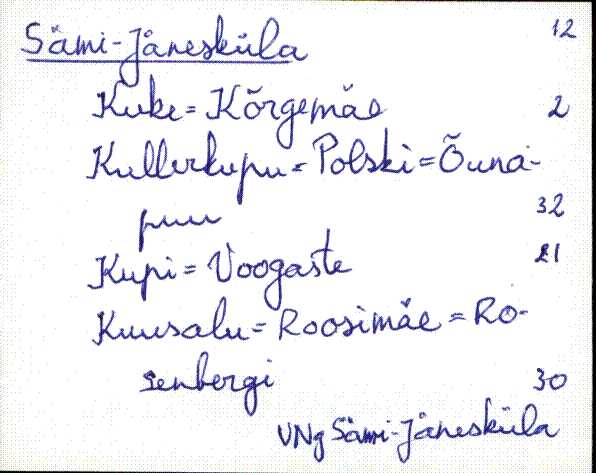 Sämi-Jänesküla 12
Kuke = Kõrgemäe 2
Kullerkupu = Polski = Õuna-
puu 32
Kupi = Voogaste 21
Kuusalu = Roosimäe = Ro-
senbergi 30
VNg Sämi-Jänesküla